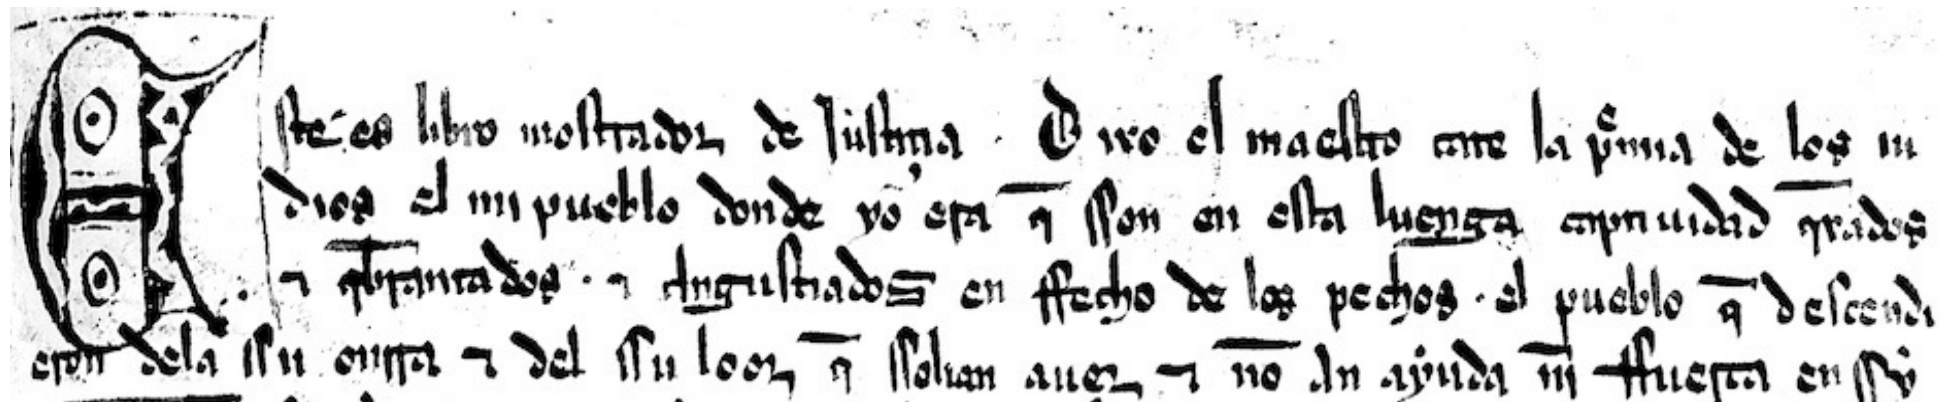 Este es libro mostrador de Justiçia · Dixo el maestro cate la pͥmia de los iu
dios el mi pueblo donde yo era q̄ sson en esta luenga captiuidad q̄xados
⁊ q̄brantados · ⁊ Angustiados en ffecho de los pechos · el pueblo q̄ descendi
eron dela ssu onrra ⁊ del ssu loor q̄ ssolian auer ⁊ nō an ayuda nī ffuerça en ssy